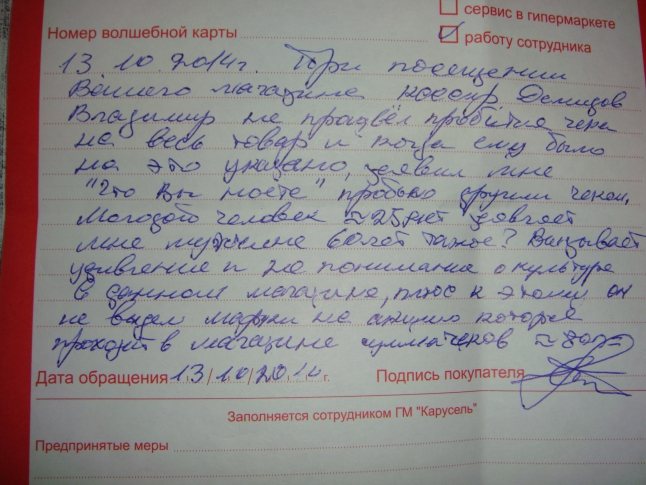 сервис в гипермаркете
Номер волшебной карты
работу сотрудника
13.10.2014г. При посещении
Вашего магазина кассир Демидов
Владимир не провёл пробития чека
на весь товар и когда ему было
на это указано, заявил мне
"Что Вы ноете" пробью другим чеком,
Молодой человек ≈ 25 лет заявляет
мне мужчине 60 лет такое? Вызывает
удивление и не понимание о культуре
в данном магазине, плюс к этому он
не выдал марки на акцию которая
проходит в магазине сумма чеков ≈
Дата обращения 13/10/2014г.
Подпись покупателя
Заполняется сотрудником ГМ "Карусель"
Предпринятые меры